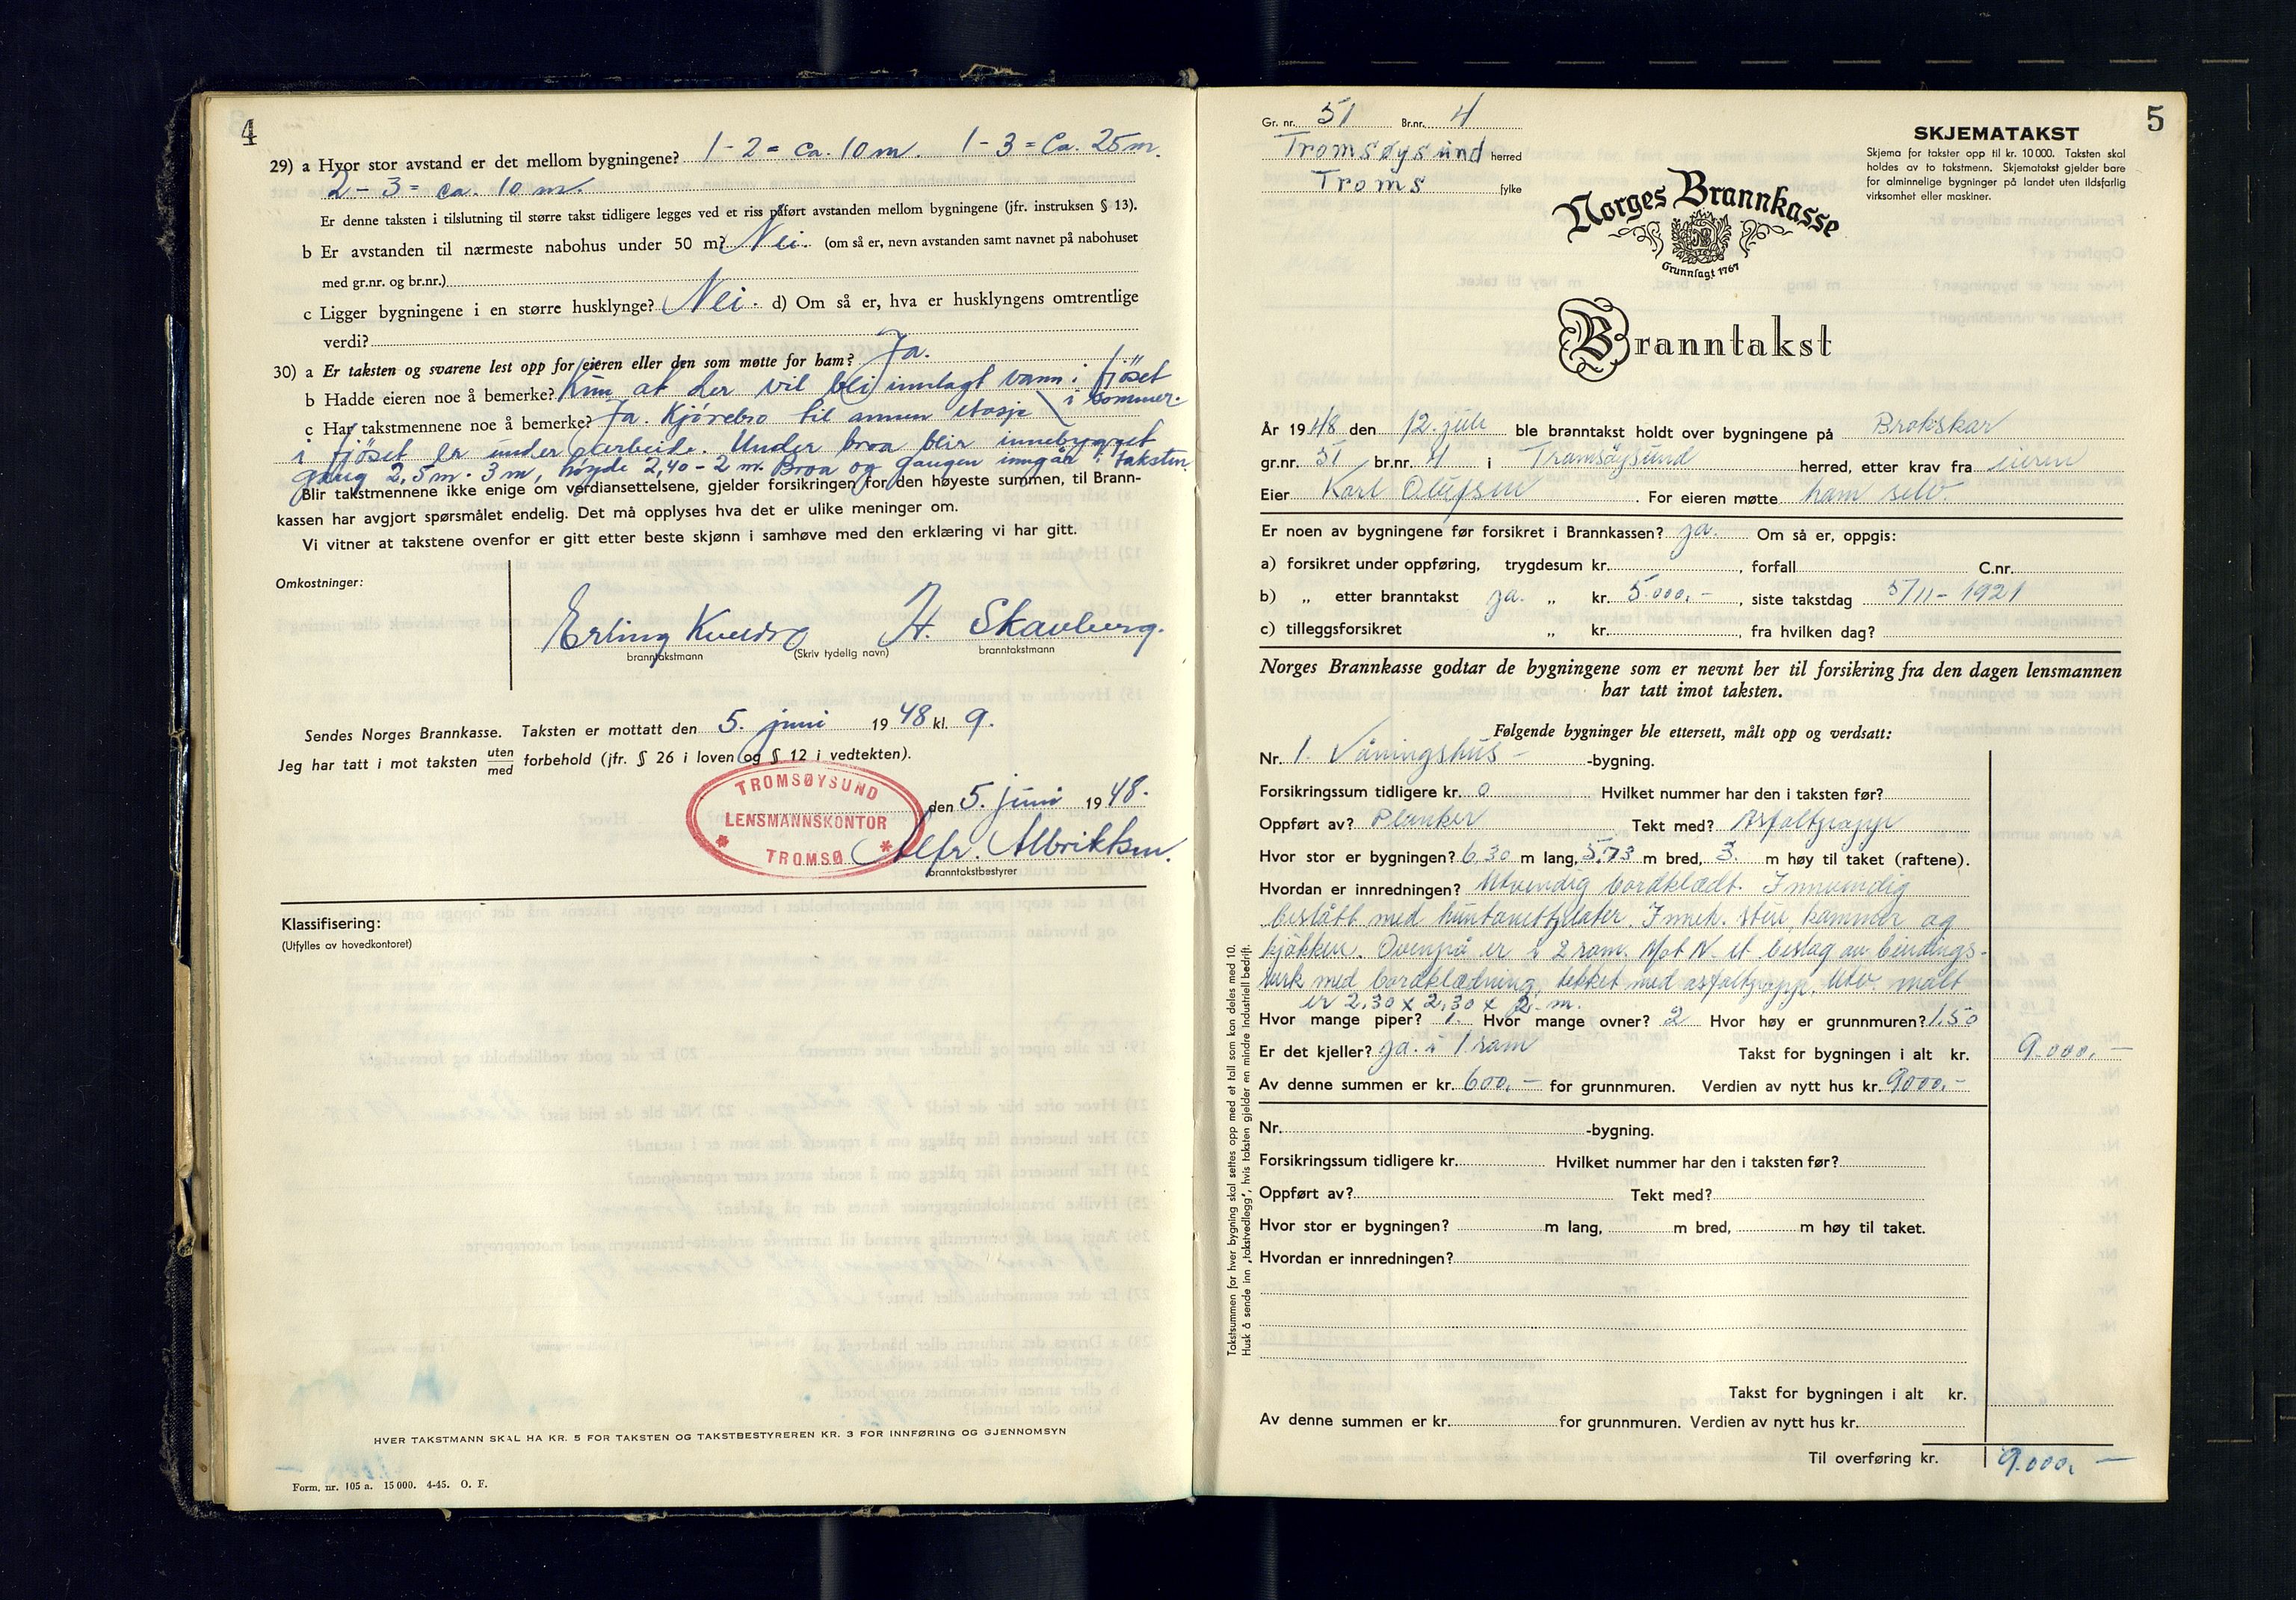 4
29) a Hvor stor avstand er det mellom bygningene? 1-2 = ca. 10 m. 1-3 = Ca. 25 m.
2-3 = ca. 10 m.
Er denne taksten i tilslutning til større takst tidligere legges ved et riss påført avstanden mellom bygningene (jfr. instruksen § 13).
b Er avstanden til nærmeste nabohus under 50 m? Nei. (om så er, nevn avstanden samt navnet på nabohuset
med gr.nr. og br.nr.)
c Ligger bygningene i en større husklynge? Nei. d) Om så er, hva er husklyngens omtrentlige
verdi?
30) a Er taksten og svarene lest opp for eieren eller den som møtte for ham? Ja.
b Hadde eieren noe å bemerke? Kun at der vil bli innlagt vann i fjöset
i sommer.
c Har takstmennene noe å bemerke? Ja. Kjörebro til annen etasje
i fjöset er under arbeide. Under broa blir innebygget
gang 2,5 m · 3 m, høyde 2,40 - 2 m. Broa og gangen inngår i taksten
Blir takstmennene ikke enige om verdiansettelsene, gjelder forsikringen for den høyeste summen, til Brann-
kassen har avgjort spørsmålet endelig. Det må opplyses hva det er ulike meninger om.
Vi vitner at takstene ovenfor er gitt etter beste skjønn i samhøve med den erklæring vi har gitt.
Omkostninger:
Erling H. Skavberg.
branntakstmann (Skriv tydelig navn) branntakstmann
Sendes Norges Brannkasse. Taksten er mottatt den 5. juni 1948 kl. 9.
Jeg har tatt i mot taksten uten med forbehold (jfr. § 26 i loven og § 12 i vedtekten).
TROMSØYSUND
LENSMANNSKONTOR
TROMSØ
den 5. juni 1948.
Alfr. Albriktsen.
branntakstbestyrer
Klassifisering:
(Utfylles av hovedkontoret)
HVER TAKSTMANN SKAL HA KR. 5 FOR TAKSTEN OG TAKSTBESTYREREN KR. 3 FOR INNFØRING OG GJENNOMSYN
Form. nr. 105 a. 15 000. 4-45. O. F.
5
Gr. nr. 51 Br.nr. 4
Tromsøysund herred
Troms fylke
SKJEMATAKST
Skjema for takster opp til kr. 10 000. Taksten skal
holdes av to takstmenn. Skjematakst gjelder bare
for alminnelige bygninger på landet uten ildsfarlig
virksomhet eller maskiner.
Norges Brannkasse
Grunnlagt 1767
Branntakst
År 1948 den 12. juli ble branntakst holdt over bygningene på Brokskar
gr.nr. 51 br.nr. 4 i Tromsöysund herred, etter krav fra eieren
Eier Karl Olufsen. For eieren møtte ham selv.
Er noen av bygningene før forsikret i Brannkassen? ja. Om så er, oppgis:
a) forsikret under oppføring, trygdesum kr. , forfall C.nr.
b) „ etter branntakst ja. „ kr. 5.000.- , siste takstdag 5/11 - 1921
c) tilleggsforsikret „ kr. , fra hvilken dag?
Norges Brannkasse godtar de bygningene som er nevnt her til forsikring fra den dagen lensmannen
har tatt imot taksten.
Følgende bygninger ble ettersett, målt opp og verdsatt:
Nr. 1. Våningshus - -bygning.
Forsikringssum tidligere kr. 0 Hvilket nummer har den i taksten før?
Oppført av? Planker Tekt med? Asfaltpapp
Hvor stor er bygningen? 6 30 m lang, 5,73 m bred, 3. m høy til taket (raftene).
Hvordan er innredningen? Utvendig bordklædt. Innvendig
beslått med huntonittplater. Inneh. stue, kammer og
kjökken. Ovenpå er 2 rom. Mot N. et beslag av bindings-
verk med bordklædning, tekket med asfaltpapp. Utv. målt
er 2,30 x 2,30 x 2 m.
Hvor mange piper? 1. Hvor mange ovner? 2 Hvor høy er grunnmuren? 1.50
Er det kjeller? ja. i 1 rom Takst for bygningen i alt kr. 9.000.-
Av denne summen er kr. 600.- for grunnmuren. Verdien av nytt hus kr. 9000.-
Nr. -bygning.
Forsikringssum tidligere kr. Hvilket nummer har den i taksten før?
Oppført av? Tekt med?
Hvor stor er bygningen? m lang, m bred, m høy til taket.
Hvordan er innredningen?
Takst for bygningen i alt kr.
Av denne summen er kr. for grunnmuren. Verdien av nytt hus kr.
Til overføring kr. 9.000.-
Takstsummen for hver bygning skal settes opp med et tall som kan deles med 10.
Husk å sende inn „takstvedlegg", hvis taksten gjelder en mindre industriell bedrift.